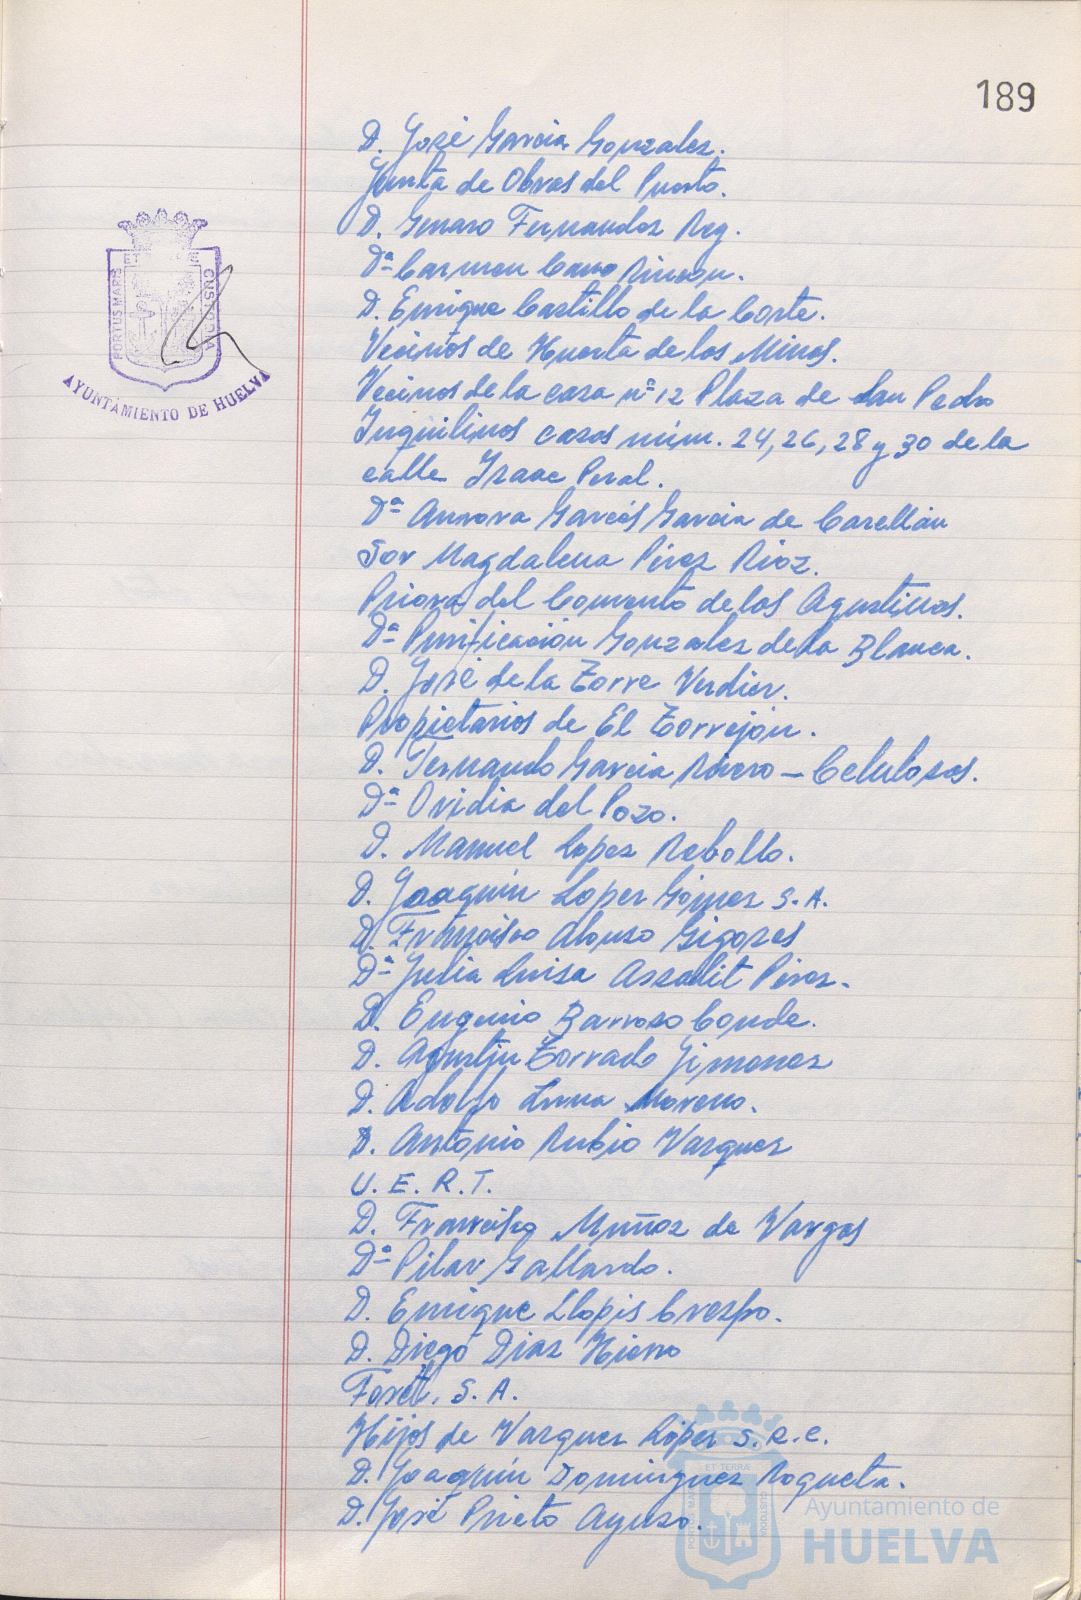 189
D. José Garcia Gonzalez.
Junta de Obras del Puerto.
D. Genaro Fernandez Rey.
Dª Carmen Cano Rincon.
D. Enrique Castillo de la Corte.
Vecinos de Huerta de las Minas.
Vecinos de la casa nº 12 Plaza de San Pedro
Inquilinos casas núm. 24, 26, 28 y 30 de la
calle Isaac Peral.
Dª Aurora Garcia de Casellán
Sor Magdalena Pérez Rioz.
Priora del Convento de las Agustinas.
Dª Purificación Gonzalez de la Blanca.
D. José de la Torre Verdier.
Propietarios de El Torrejón.
D. Fernando Garcia Rivero - Celulosas.
Dª Ovidia del Pozo.
D. Manuel Lopez Rebollo.
D. Joaquín Lopez Gómez S.A.
D. Francisco Alonso Gigores
Dª Julia Luisa Assalit Pérez.
D. Eugenio Barroso Conde.
D. Agustin Torrado Jimenez
D. Adolfo Luna Moreno.
D. Antonio Rubio Vazquez
U.E.R.T.
D. Francisco Muñoz de Vargas
Dª Pilar Gallardo.
D. Enrique Llopis Crespo.
D. Diego Diaz Hierro
Foret, S.A.
Hijos de Vazquez López S.R.C.
D. Joaquín Dominguez Roqueta.
D. José Prieto Ayuso.
PORTUS MARIS
CUSTODIA
AYUNTAMIENTO DE HUELVA
ET TERRAE
PORTUS MARIS
CUSTODIA
Ayuntamiento de
HUELVA